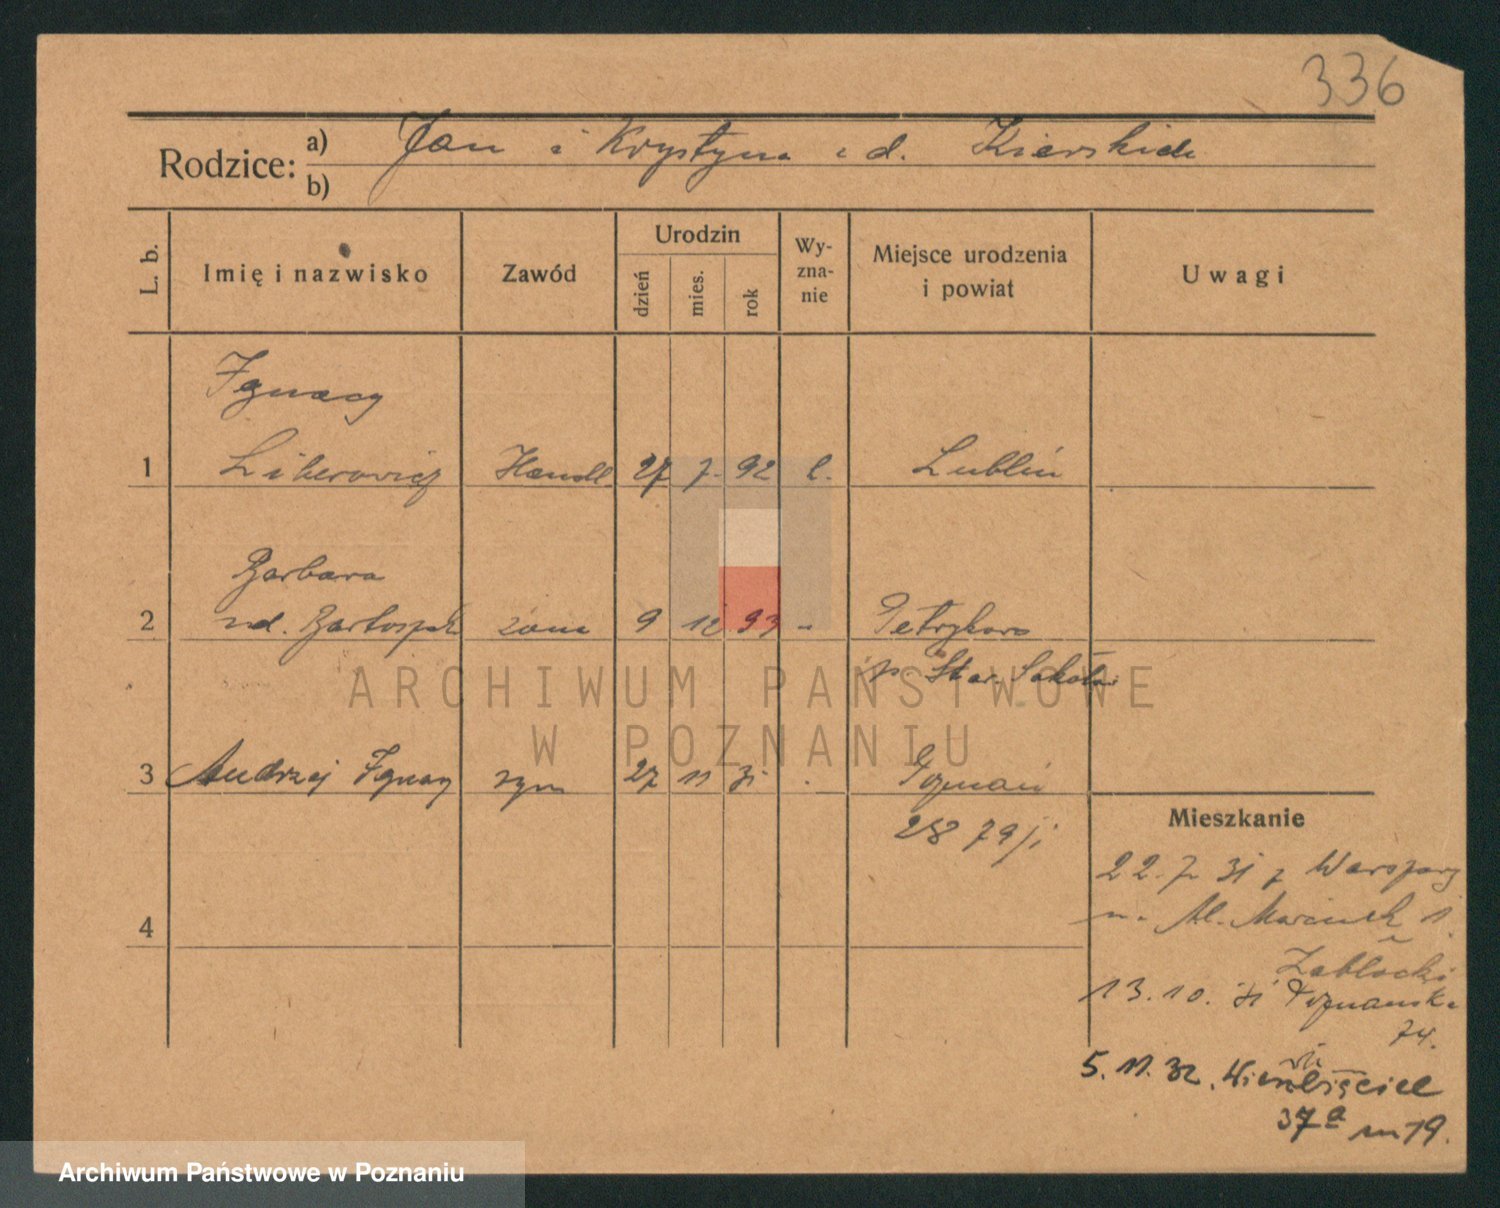 336
Rodzice: a) Jan i Krystyna z d. Zierskich
b)
L. b. Imię i nazwisko Zawód Urodzin dzień mies. rok Wyznanie Miejsce urodzenia i powiat Uwagi
Ignacy
1 Liberowicz Handl 27 7. 92 l. Lublin
Barbara
2 zd. żona 9 12 93 - Petrykow
p. Star.
3 Andrzej Ignacy syn 27 11 31 Poznań
28 79/i
Mieszkanie
4
22. 7. 31 z Warszawy
Marcinek 1.
Zabłocki
13. 10. 31 Poznańska
74.
5. 11. 32. Wierzbięcice
37a m 19.
ARCHIWUM PAŃSTWOWE
W POZNANIU
Archiwum Państwowe w Poznaniu